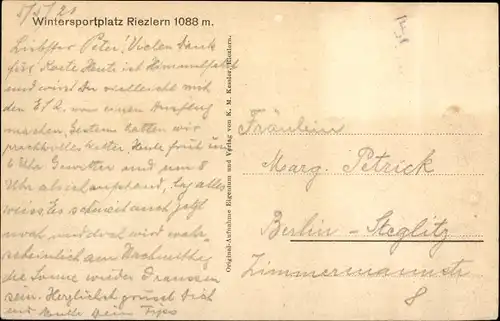 5/5/21
Wintersportplatz Riezlern 1088 m.
Liebster Peter! Vielen Dank
für Karte Heute ist Himmelfahrt
und wirst Du vielleicht mit
den E. S. A. von einen Ausflug
machen. Gestern hatten wir
prachtvolles Wetter. Heute früh um
6 Uhr Gewitter und um 8
Uhr als ich aufstand, lag alles
weiss. Es schneit auch jetzt
noch, und doch wird wahr-
scheinlich am Nachmittag
die Sonne wieder draussen
sein. Herzlichst grüsst Dich
und Dein
Original-Aufnahme Eigentum und Verlag von K. M. Kessler, Riezlern.
Fräulein
Marg. Petrick
Berlin - Steglitz
Zimmermannstr
8